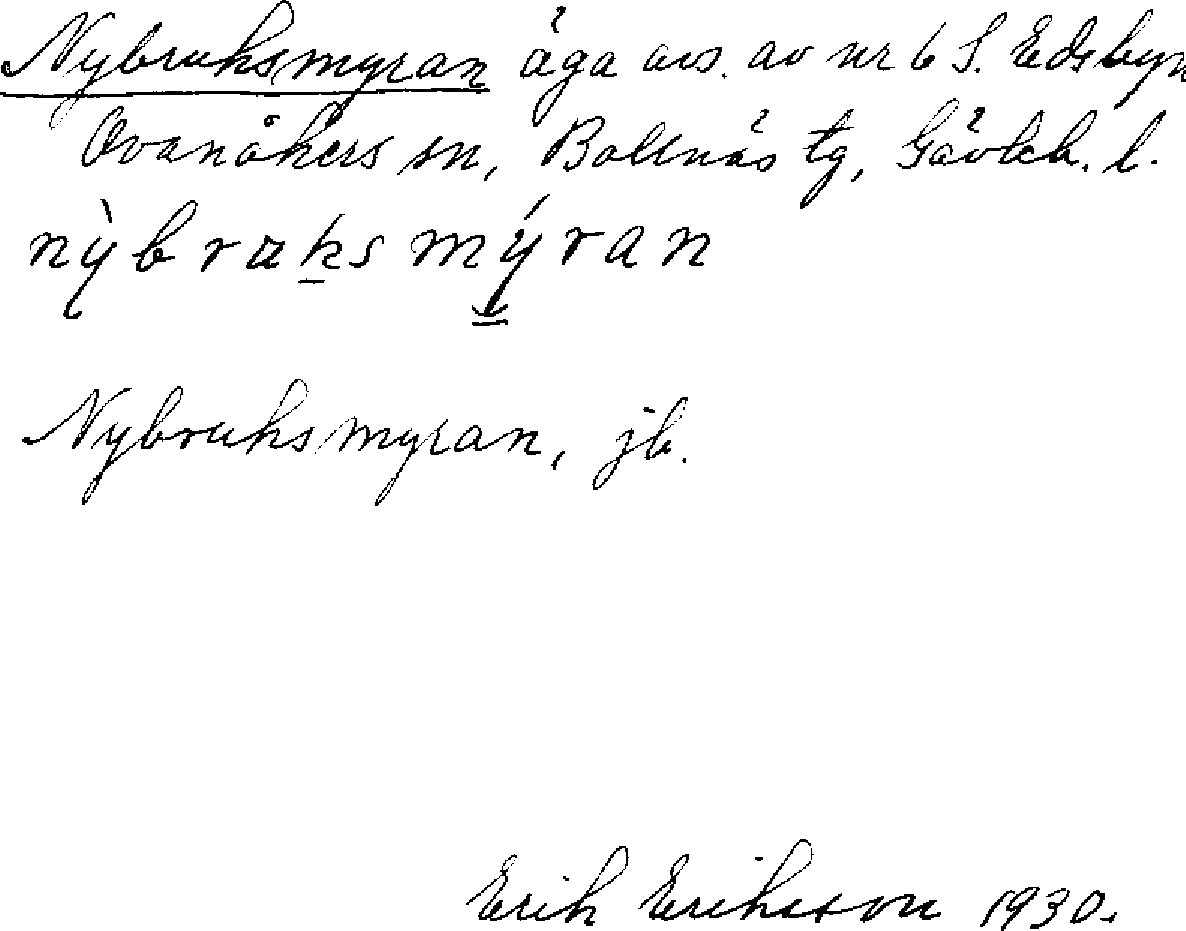 Nybruksmyran äga avs. av nr 6 S. Edsbyn
Ovanåkers sn, Bollnäs tg, Gävleb. l.
nỳbruksmýran
Nybruksmyran, jb.
Erik Eriksson 1930.